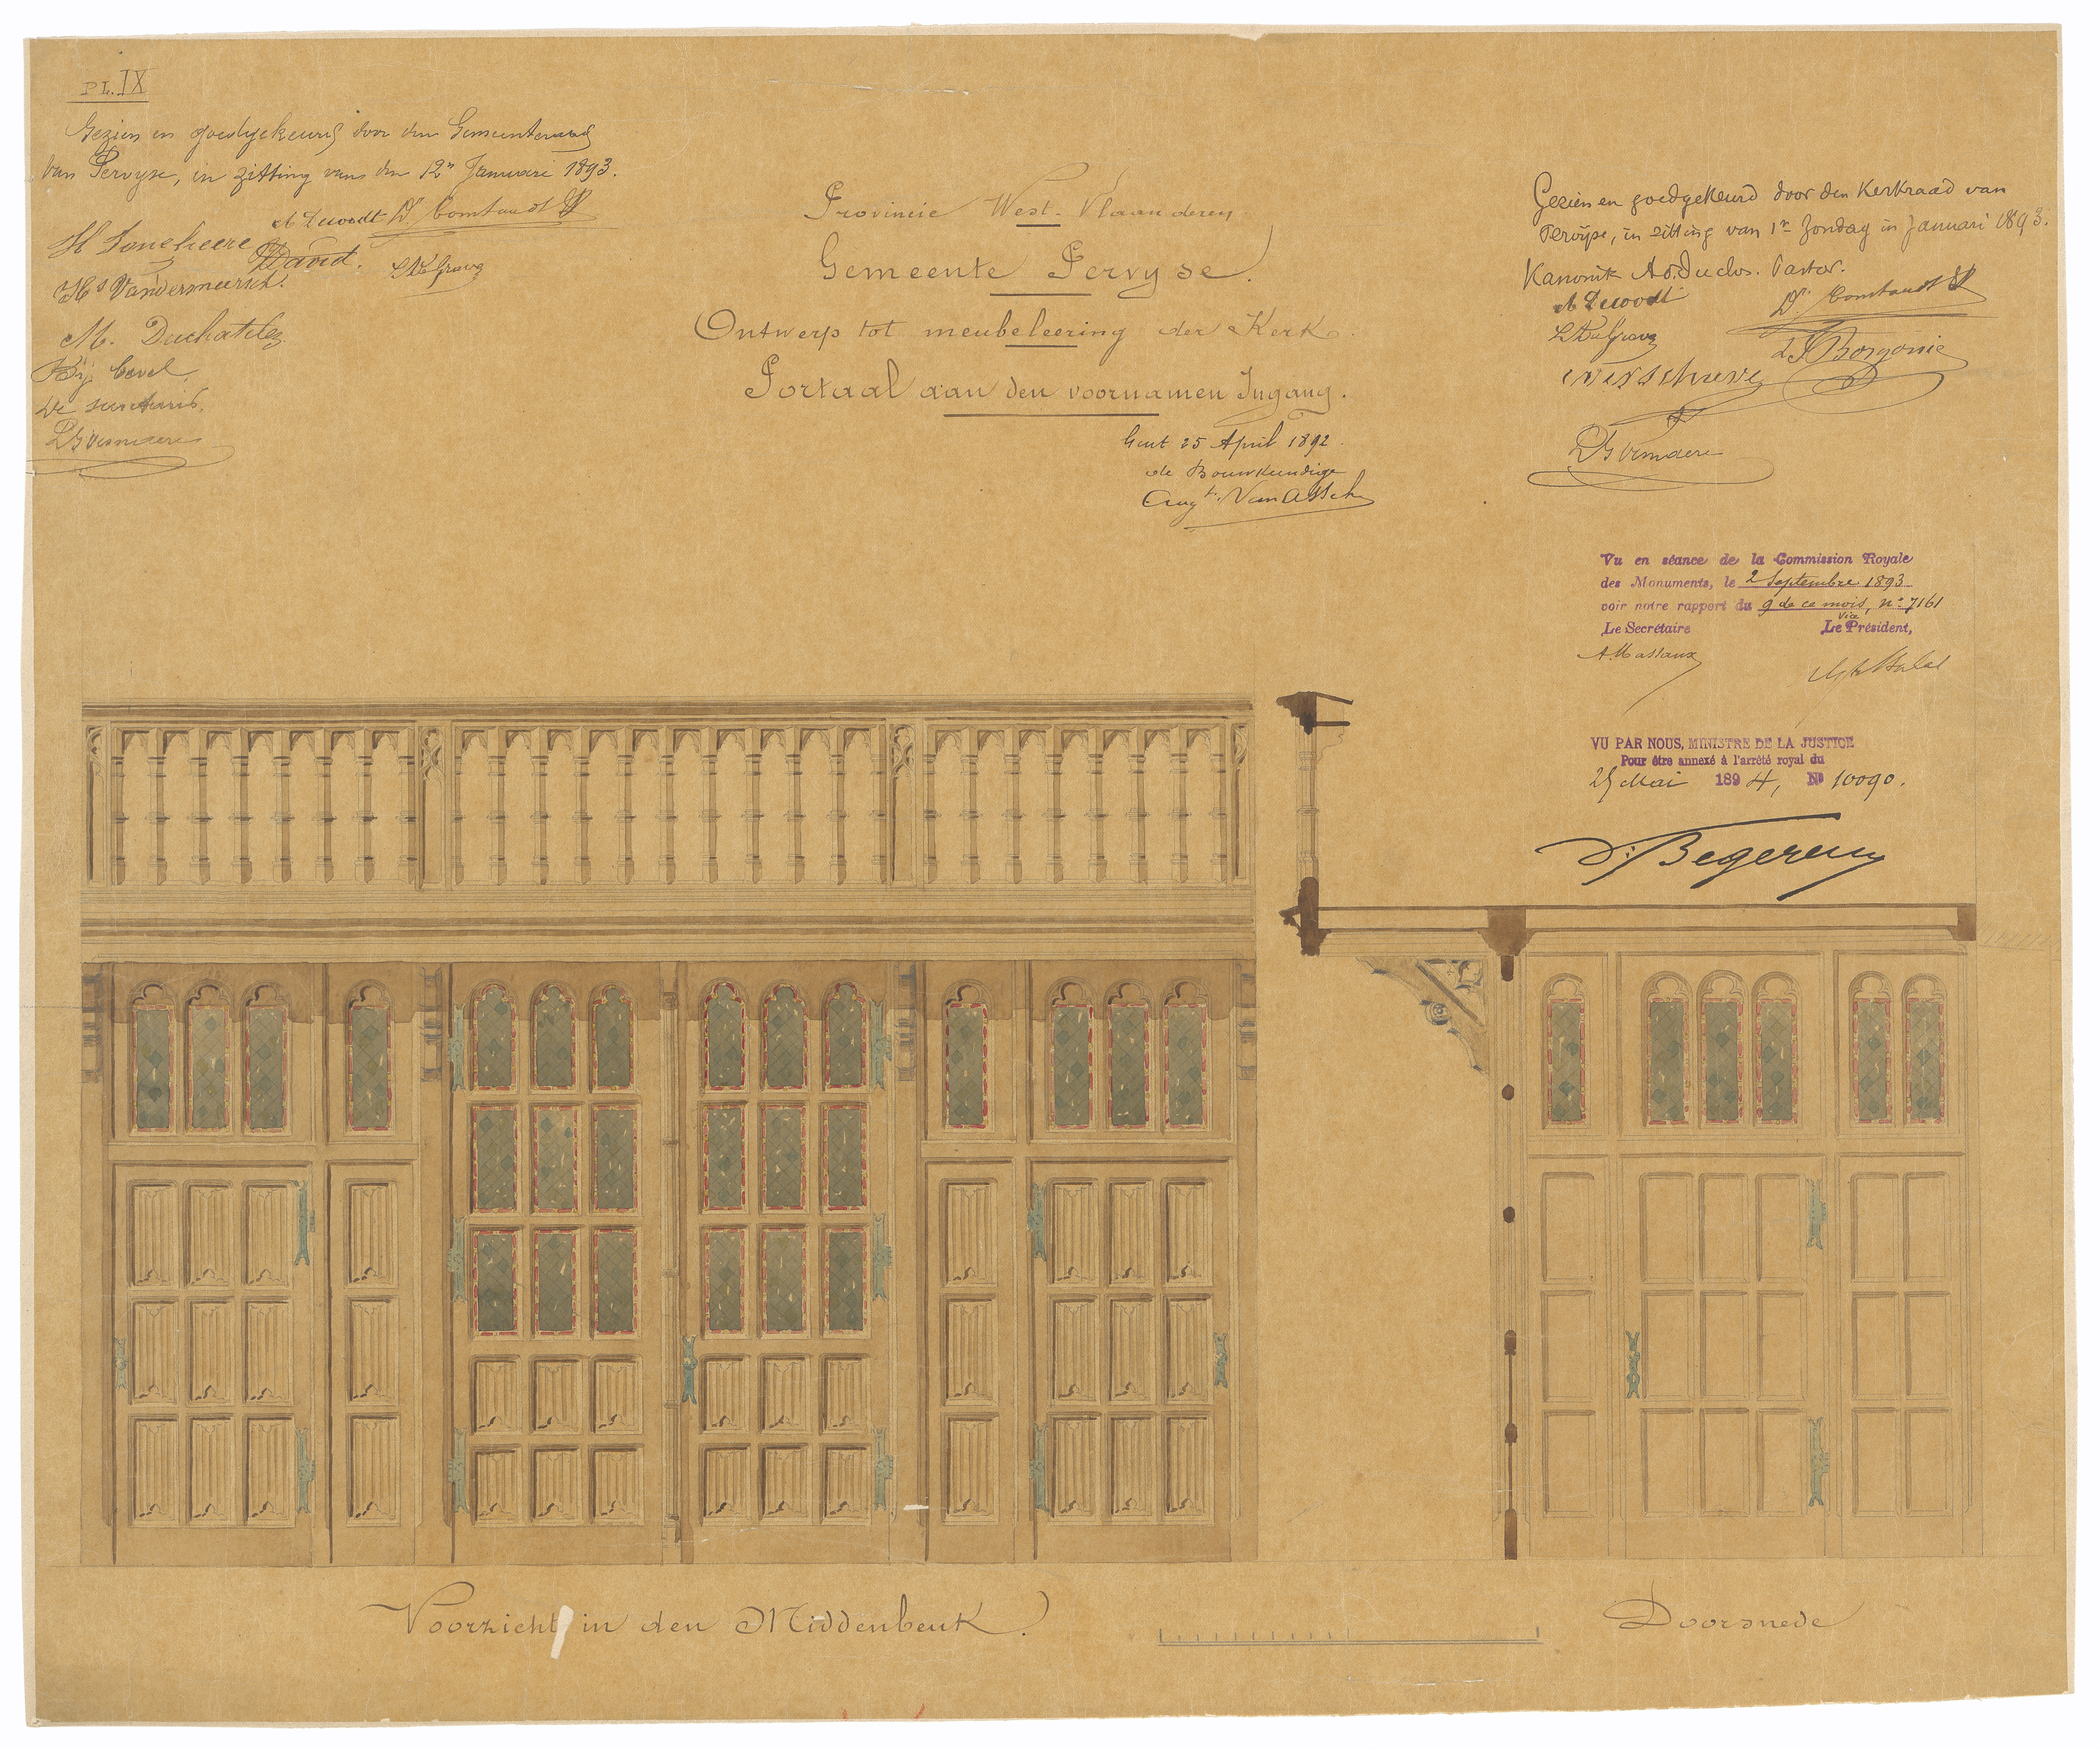 PL. IX
Gezien en goedgekeurd door den Gemeenteraad
van Pervyse, in zitting van den 12n Januari 1893.
A Dewodt Dr Comtandt
H Joncheere
David.
L DeGrave
Hs Vandermeersch.
M. Duchatelez
Bij bevel,
De secretaris,
Provincie West-Vlaanderen
Gemeente Pervyse.
Ontwerp tot meubeleering der Kerk.
Portaal aan den voornamen Ingang.
Gent 25 April 1892.
de Bouwkundige
Augt. Van Assche
Gezien en goedgekeurd door den Kerkraad van
Pervyse, in zitting van 1n Zondag in Januari 1893.
Kanonik Ad. Duclos. Pastor.
A Dewodt
Dr Comtandt
L DeGrave
Vu en séance de la Commission Royale
des Monuments, le 2 Septembre 1893
voir notre rapport du 9 de ce mois, no 7161
Le Secrétaire Le Vice Président,
A. Massaux
VU PAR NOUS, MINISTRE DE LA JUSTICE
Pour être annexé à l'arrêté royal du
25 Mai 1894, No 10090.
Begerem
Voorzicht in den Middenbeuk.
Doorsnede